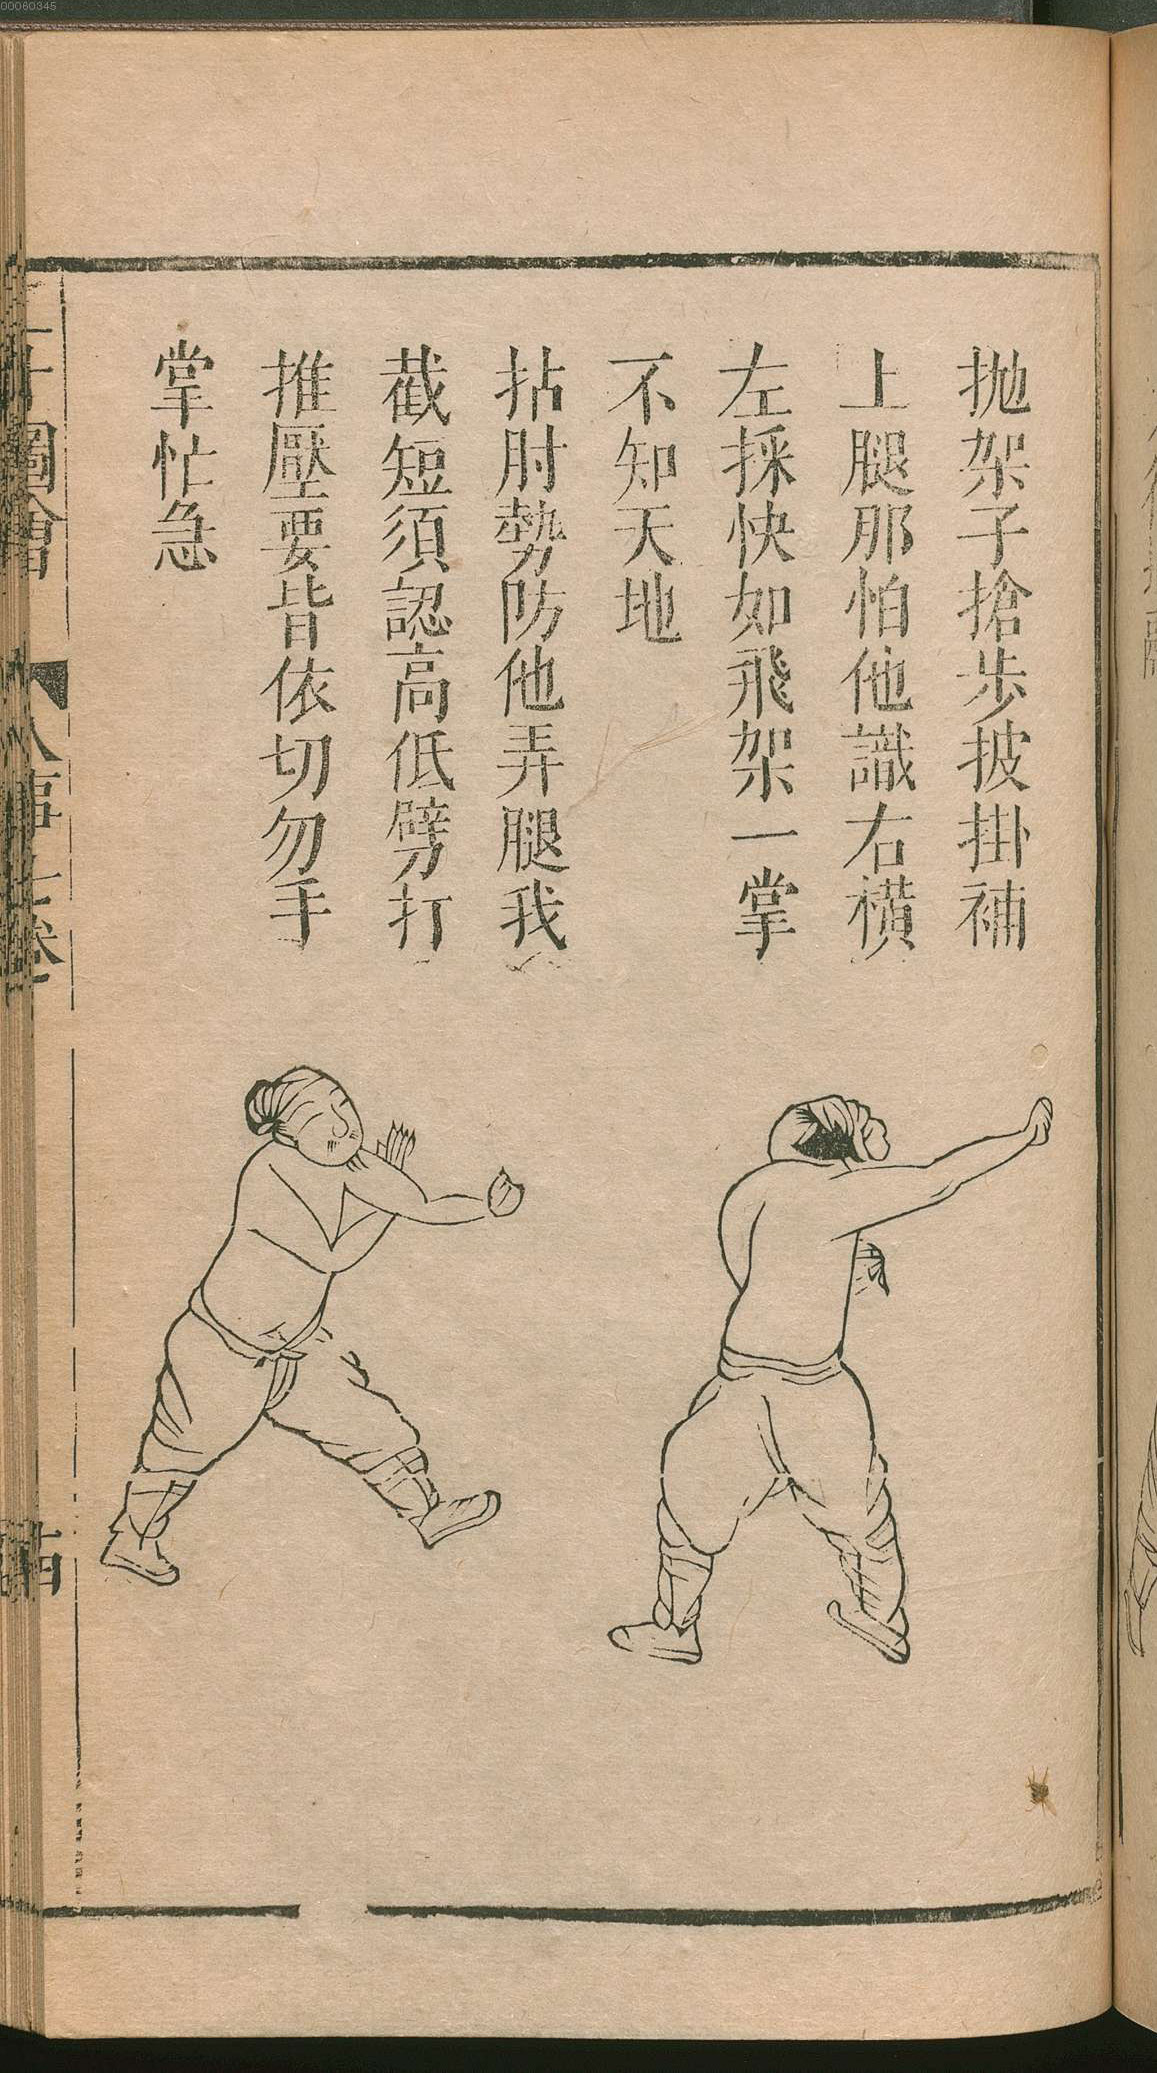 00060345
拋架子搶步披掛補
上腿那怕他識右橫
左採快如飛架一掌
不知天地
拈肘勢防他弄腿我
截短須認高低劈打
推壓要皆依切勿手
掌忙急
圖會